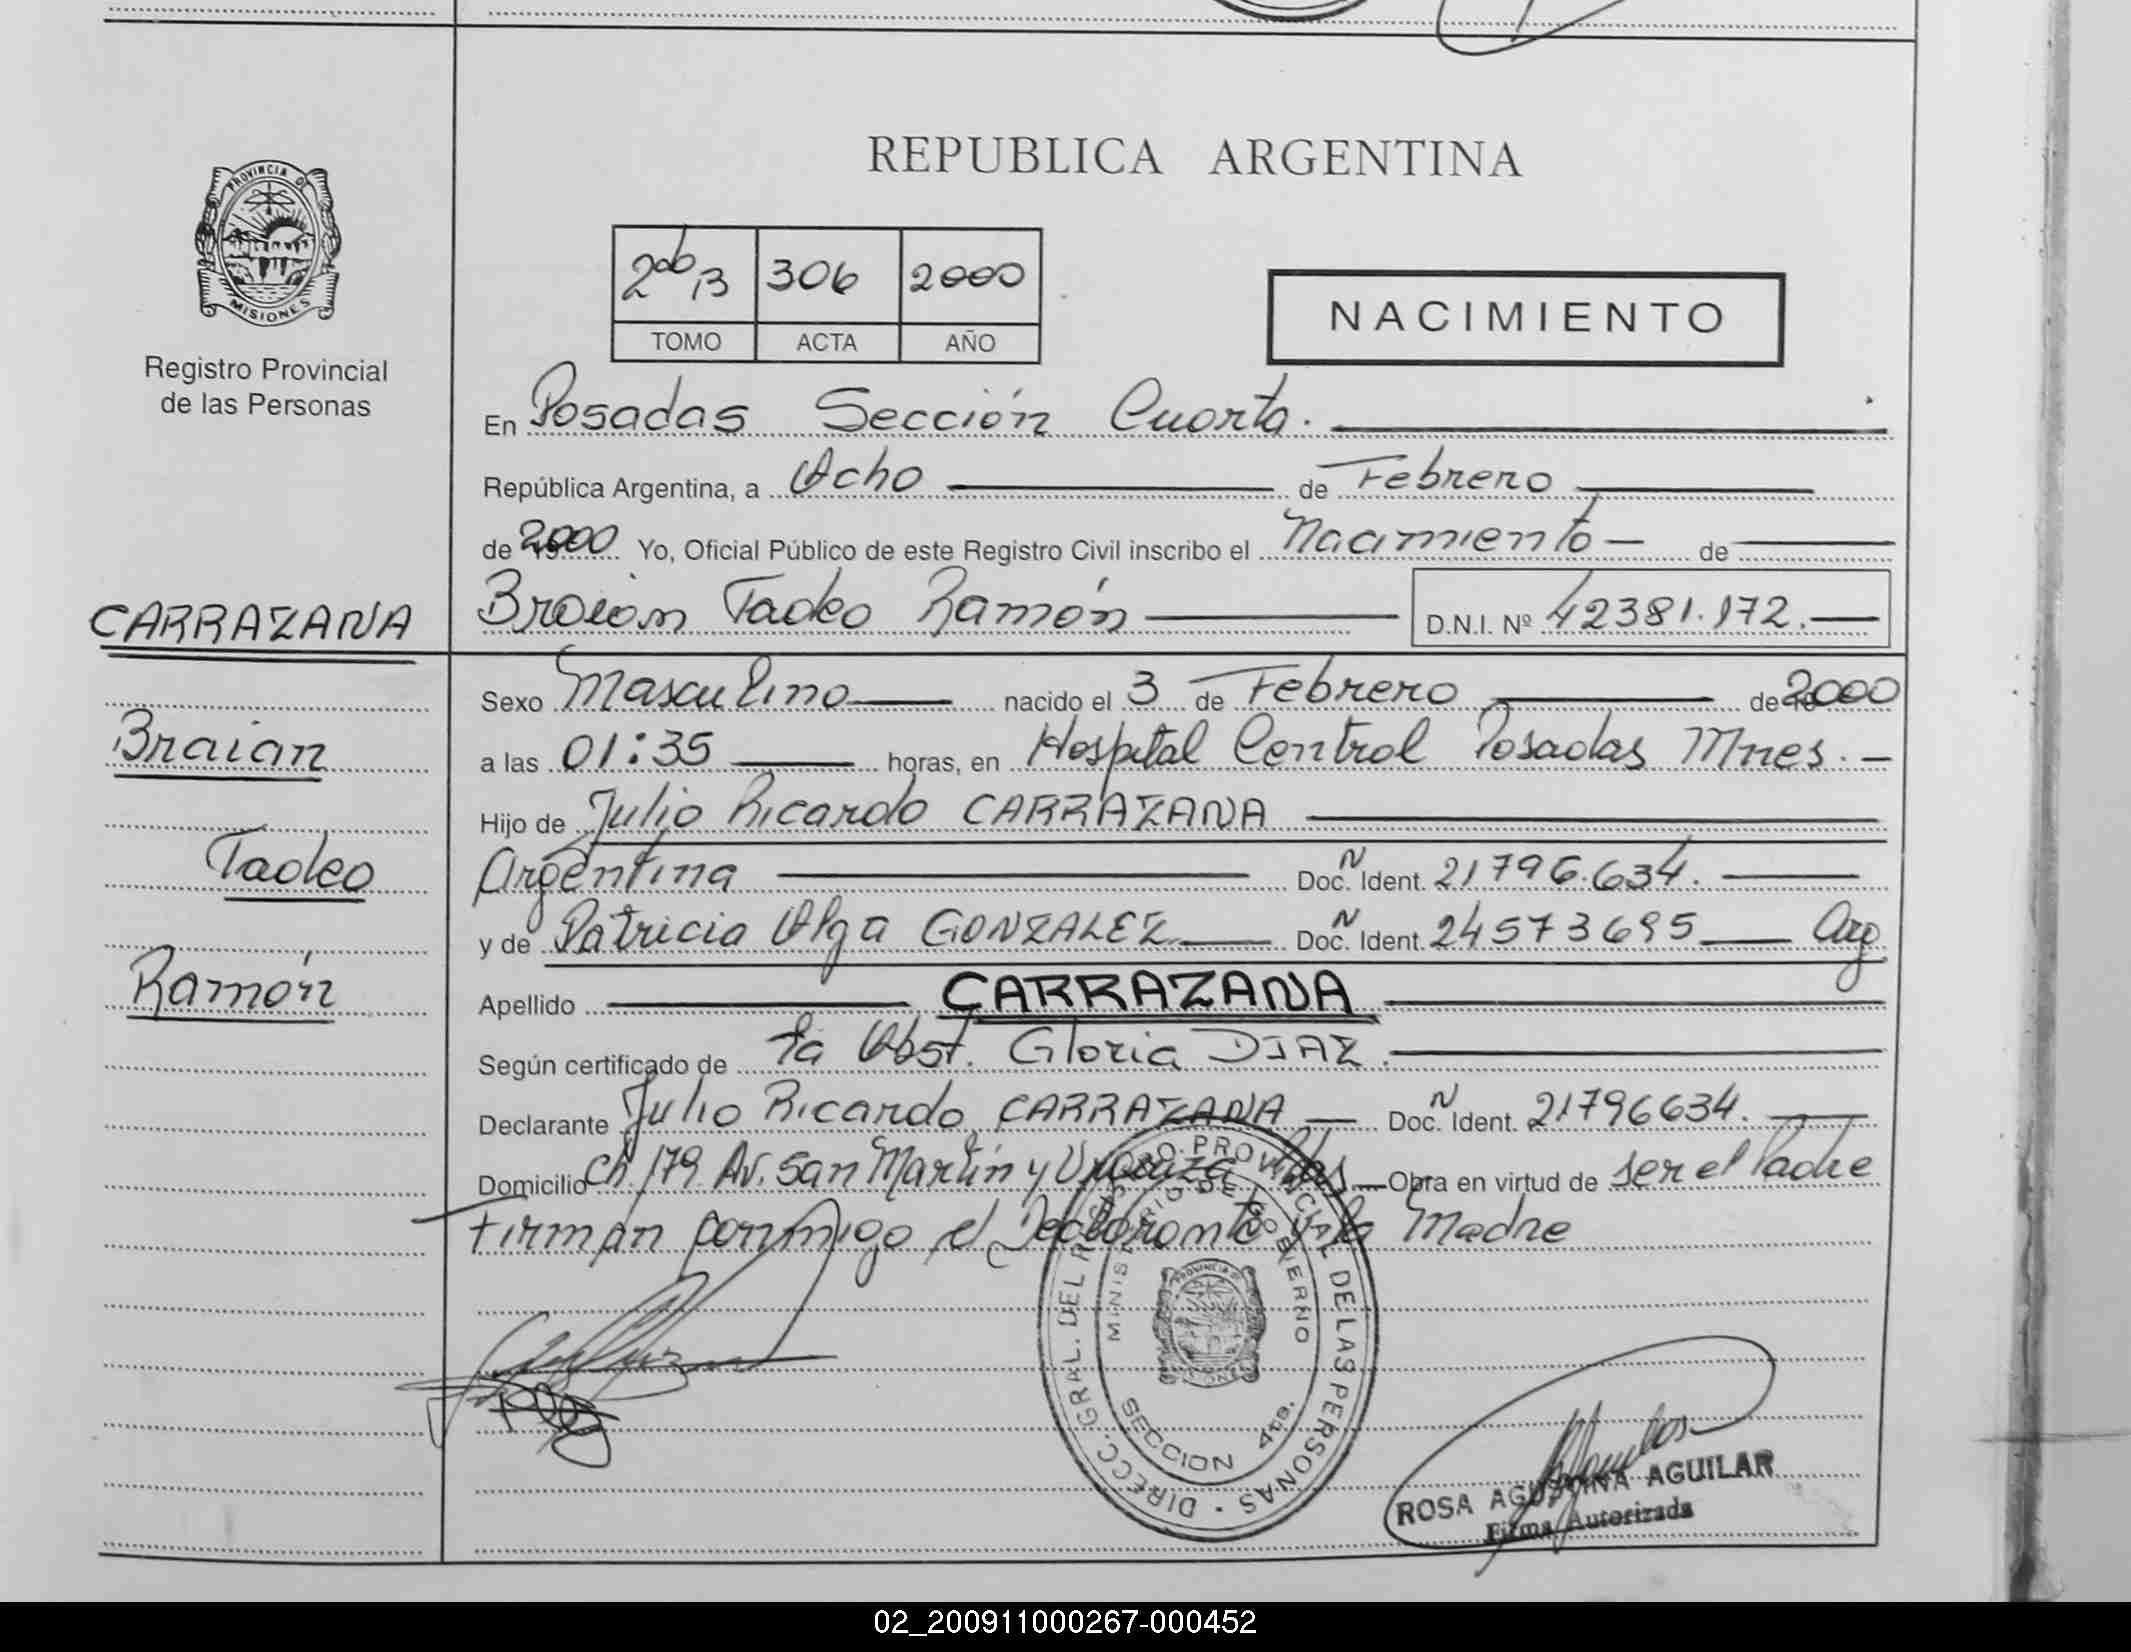 REPUBLICA ARGENTINA
PROVINCIA DE
MISIONES
Registro Provincial
de las Personas
306 2000
TOMO ACTA AÑO
NACIMIENTO
En Posadas Sección Cuarta.
República Argentina, a Ocho de Febrero
de 2000 Yo, Oficial Público de este Registro Civil inscribo el Nacimiento de
CARRAZANA
Braian Tadeo Ramón D.N.I. Nº 42381.172.
Sexo Masculino nacido el 3 de Febrero de 2000
Braian
a las 01:35 horas, en Hospital Central Posadas Mnes.
Hijo de Julio Ricardo CARRAZANA
Tadeo
Argentina Doc. N Ident. 21796.634.
y de Patricia Olga GONZALEZ Doc. N Ident. 24573695 Arg.
Ramón
Apellido CARRAZANA
Según certificado de la Obst. Gloria DIAZ.
Declarante Julio Ricardo CARRAZANA Doc. N Ident. 21796634.
Domicilio Ch. 179 Av. San Martín y Urquiza Pdas Obra en virtud de ser el Padre
Firman conmigo el Declarante y la Madre
DIRECC. GRAL. DEL REGISTRO PROVINCIAL DE LAS PERSONAS
MINISTERIO DE GOBIERNO
PROVINCIA DE
MISIONES
SECCION 4ta.
ROSA AGUSTINA AGUILAR
Firma Autorizada
02_200911000267-000452